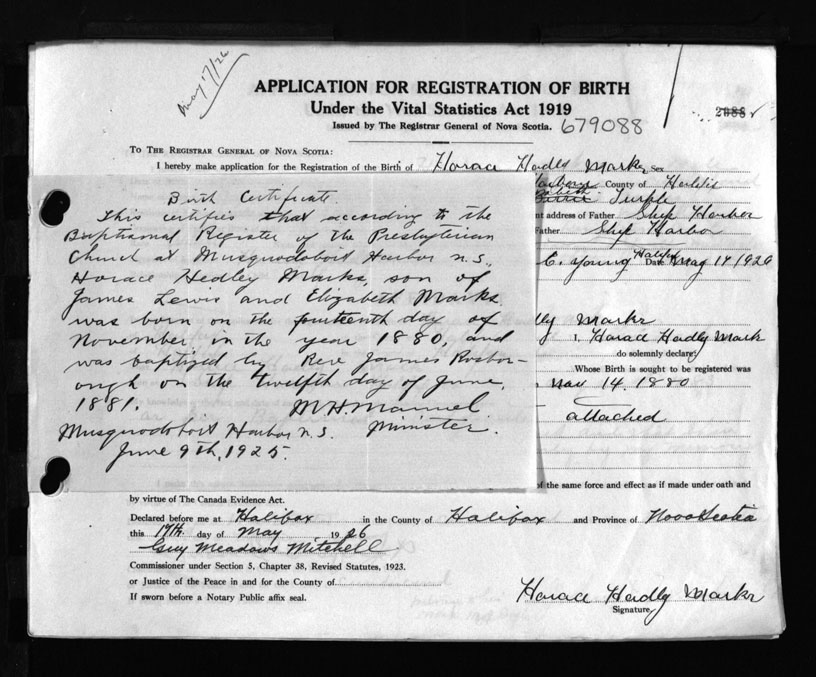 May 17/26
APPLICATION FOR REGISTRATION OF BIRTH
Under the Vital Statistics Act 1919
Issued by The Registrar General of Nova Scotia.
679088
2088
TO THE REGISTRAR GENERAL OF NOVA SCOTIA:
I hereby make application for the Registration of the Birth of Horace Hedly Marks Sex
County of Halifax
Turple
nt address of Father Ship Harbor
Father Ship Harbor
C. Young Halifax Date May 14 1926
dly Marks
I, Horace Hedly Mark
do solemnly declare:
Whose Birth is sought to be registered was
Nov. 14. 1880
attached
of the same force and effect as if made under oath and
by virtue of The Canada Evidence Act.
Declared before me at Halifax in the County of Halifax and Province of Nova Scotia
this 17th. day of May 1926
Guy Meadows Mitchell
Commissioner under Section 5, Chapter 38, Revised Statutes, 1923.
or Justice of the Peace in and for the County of
If sworn before a Notary Public affix seal.
Horace Hedly Marks
Signature
Birth Certificate.
This certifies that according to the
Baptismal Register of the Presbyterian
Church at Musquodoboit Harbor N.S.,
Horace Hedley Marks, son of
James Lewis and Elizabeth Marks,
was born on the fourteenth day of
November, in the year 1880, and
was baptized by Rev. James Rosbor-
ough on the twelfth day of June,
1881.
M.H. Manuel
Minister.
Musquodoboit Harbor N.S.
June 9th, 1925.